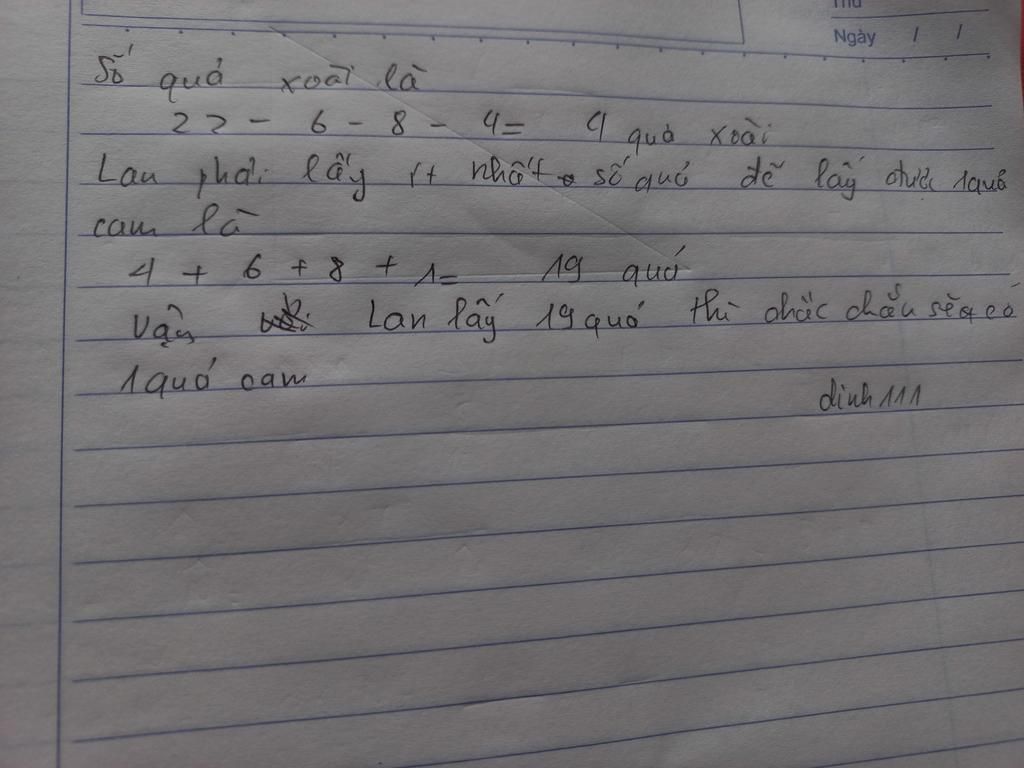 Thứ
Ngày / /
Số quả xoài là
22 - 6 - 8 - 4 = 4 quả xoài
Lan phải lấy ít nhất số quả để lấy được 1 quả
cam là
4 + 6 + 8 + 1 = 19 quả
Vậy Lan lấy 19 quả thì chắc chắn sẽ có
1 quả cam
dinh 111